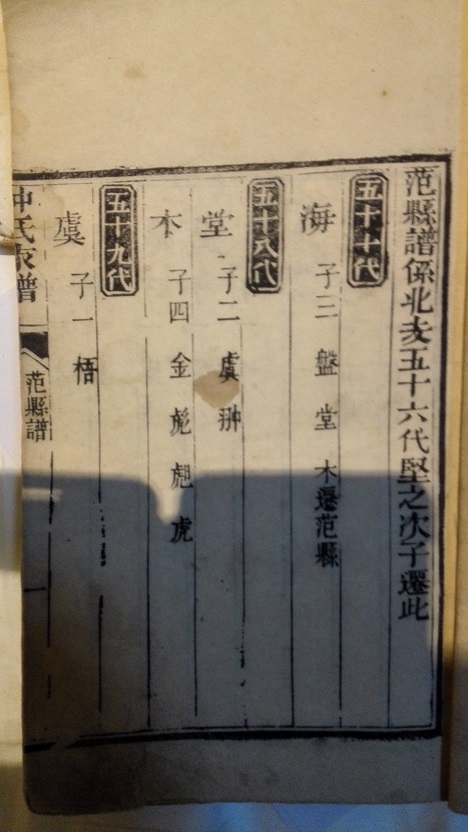 范縣譜係北支五十六代堅之次子遷此
五十七代
海 子三 盤 堂 木遷范縣
五十八代
堂 子二 虞 翀
本 子四 金 彪 彪 虎
五十九代
虞 子一 梧
仲氏家譜 范縣譜 一